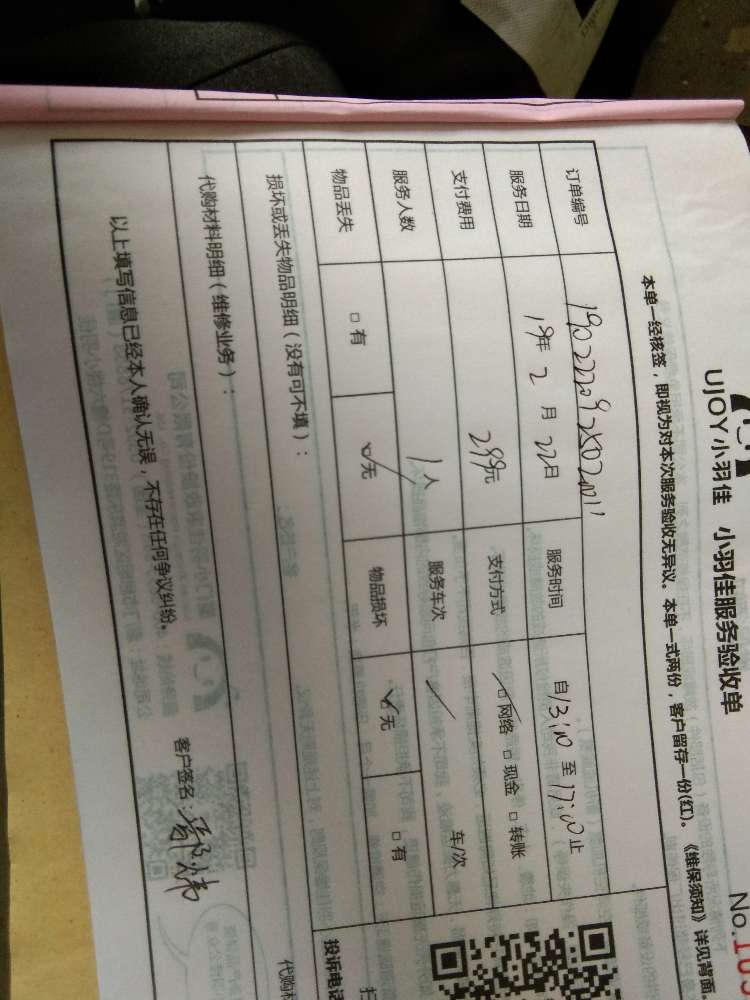 UJOY小羽佳 小羽佳服务验收单
No.
本单一经核签，即视为对本次服务验收无异议。本单一式两份，客户留存一份(红)。《维保须知》详见背面
订单编号
服务日期 19年 2月 22日 服务时间 自13:10至17:10止
支付费用 299元 支付方式 □网络 □现金 □转账
服务人数 1人 服务车次 / 车/次
物品丢失 □有 □无 物品损坏 □无 □有
损坏或丢失物品明细（没有可不填）：
代购材料明细（维修业务）：
以上填写信息已经本人确认无误，不存在任何争议纠纷。
客户签名：
投诉电话
代购材